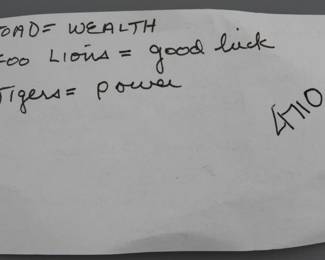 OAD= WEALTH
OO LIONS = good luck
Tigers= power
4710